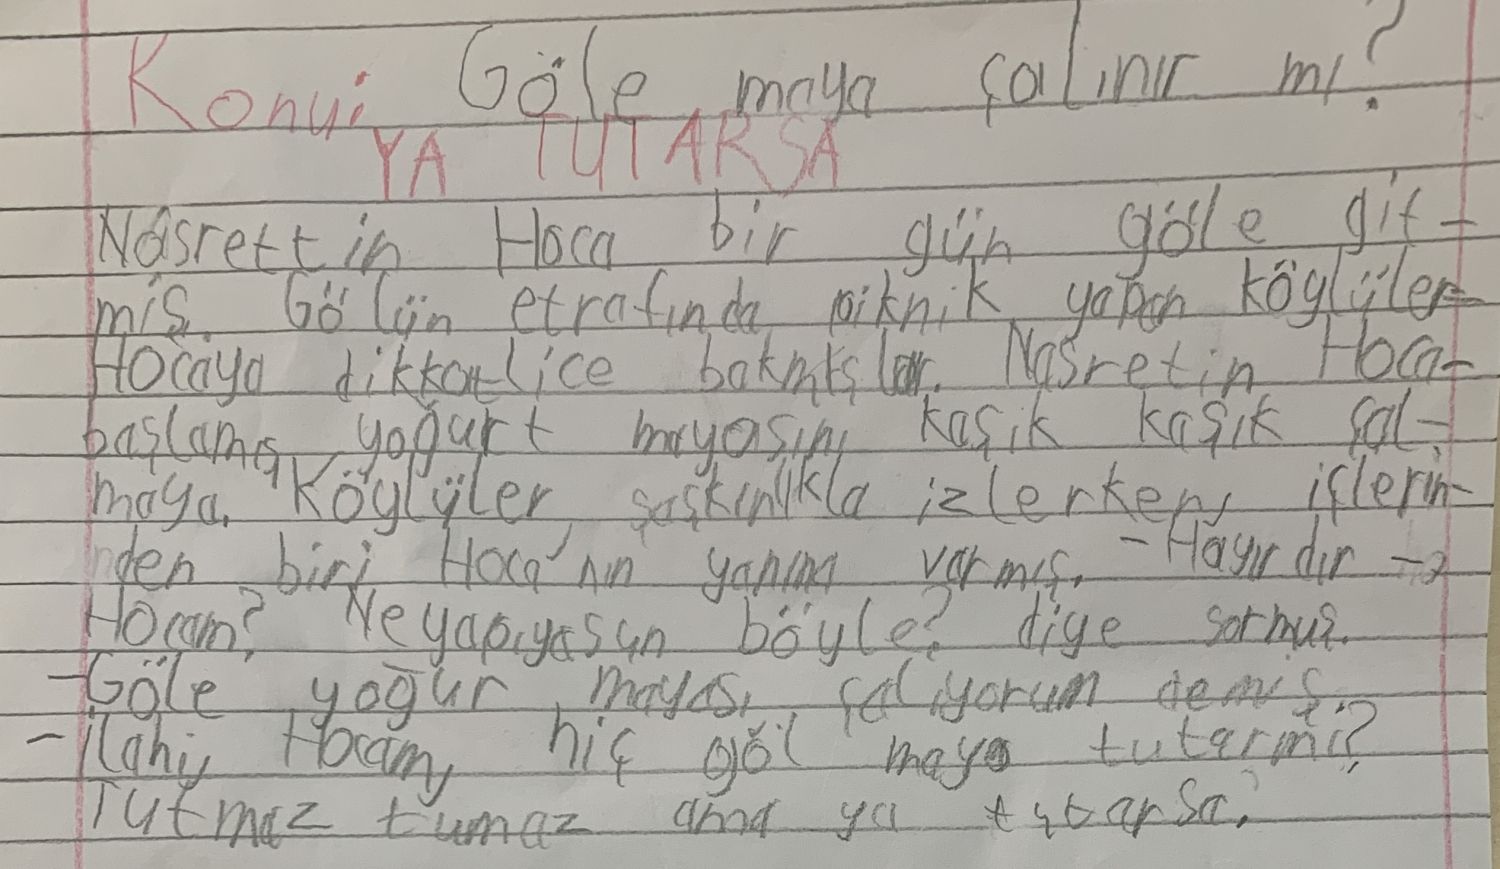 Konu: Göle maya çalınır mı?
YA TUTARSA
Nasrettin Hoca bir gün göle git-
miş. Gölün etrafında piknik yapan köylüler
Hocaya dikkatlice bakmışlar. Nasretin Hoca
başlamış yoğurt mayasını kaşık kaşık çal-
maya. Köylüler şaşkınlıkla izlerken, içlerin-
nden biri Hoca'nın yanına varmış. - Hayırdır
Hocam? Ne yapıyasun böyle? diye sormuş.
-Göle yoğur mayası çalıyorum demiş.
-ilahi, Hocam, hiç göl maya tutarmı?
Tutmaz tumaz ama ya tutarsa.